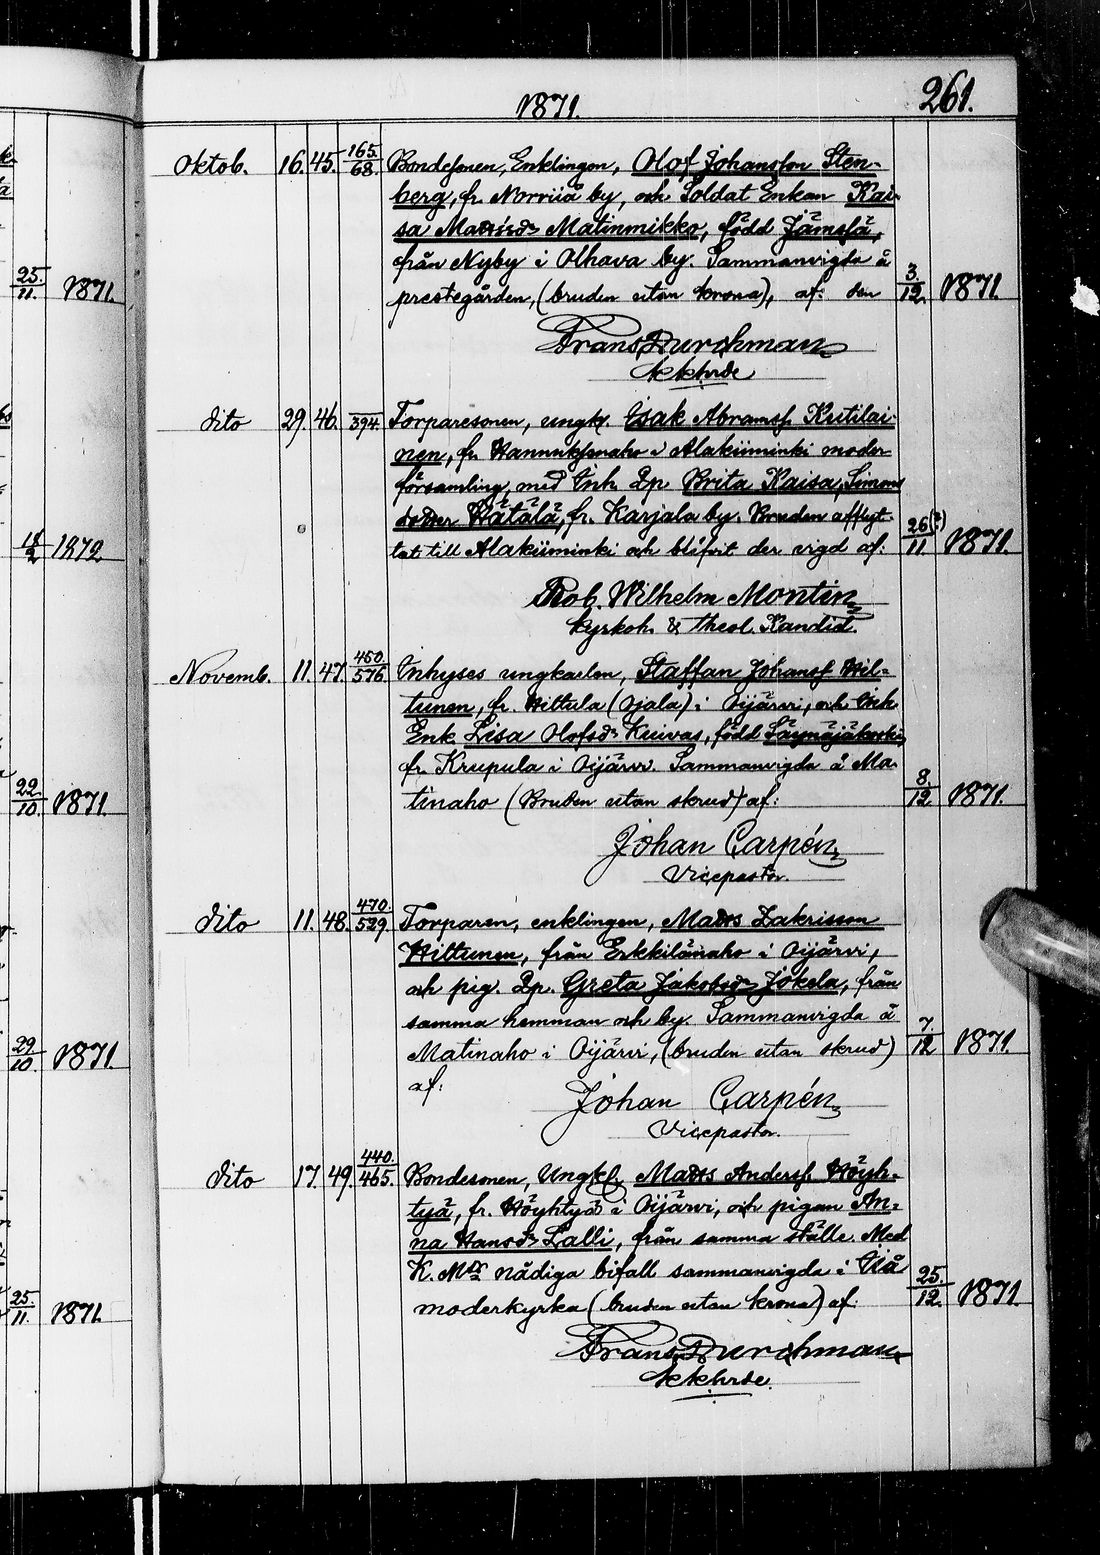 1871.
261.
Oktob. 16. 45. 165./68. Bondesonen, Enklingen, Olof Johansson Sten-
berg, fr. Norriiå by, och Soldat Enkan Kai-
sa Mattsd:r Matinmikko, född Jämsä,
från Nyby i Olhava by. Sammanvigda å
prestegården, (bruden utan krona), af: den 3./12. 1871.
Frans Durchman
dito 29. 46. /394. Torparesonen, ungk. Isak Abramss. Kutilai-
nen, fr. Hannuksenaho i Alakiiminki moder
församling, med Inh. Dp. Brita Kaisa, Simons
dotter Hätälä, fr. Karjala by. Bruden afflyt-
tat till Alakiiminki och blifvit der vigd af: 26(?)/11. 1871.
Rob. Wilhelm Montin
Kyrkoh. & theol. Kandid.
Novemb. 11. 47. 450./576. Inhyses ungkarlen, Staffan Johanss. Hil-
tunen, fr. Hiltula (Ojala) i Oijärvi, och Inh.
Enk. Lisa Olofsd:r Kuivas, född
fr. Krupula i Oijärvi. Sammanvigda å Ma-
tinaho (Bruden utan skrud) af: 8./12. 1871.
Johan Carpén
Vicepastor.
dito 11. 48. 470./529. Torparen, enklingen, Matts Zakrisson
Hiltunen, från Erkkilänaho i Oijärvi,
och pig. Dp. Greta Jakobsd:r Jokela, från
samma hemman och by. Sammanvigda å
Matinaho i Oijärvi, (bruden utan skrud) 7./12. 1871.
af:
Johan Carpén
Vicepastor.
dito 17. 49. 440./465. Bondesonen, Ungk. Matts Anderss. Höyh-
tyä, fr. Höyhtyä i Oijärvi, och pigan An-
na Hansd:r Lalli, från samma ställe. Med
K. M:ts nådiga bifall sammanvigda i Iiå
moderkyrka (bruden utan krona) af: 25./12. 1871.
Frans Durchman
25./11. 1871.
18/2 1872
22./10. 1871.
29/10. 1871.
25./11. 1871.